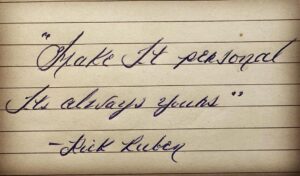 "Make It personal
Its always yours"
- Rick Rubin